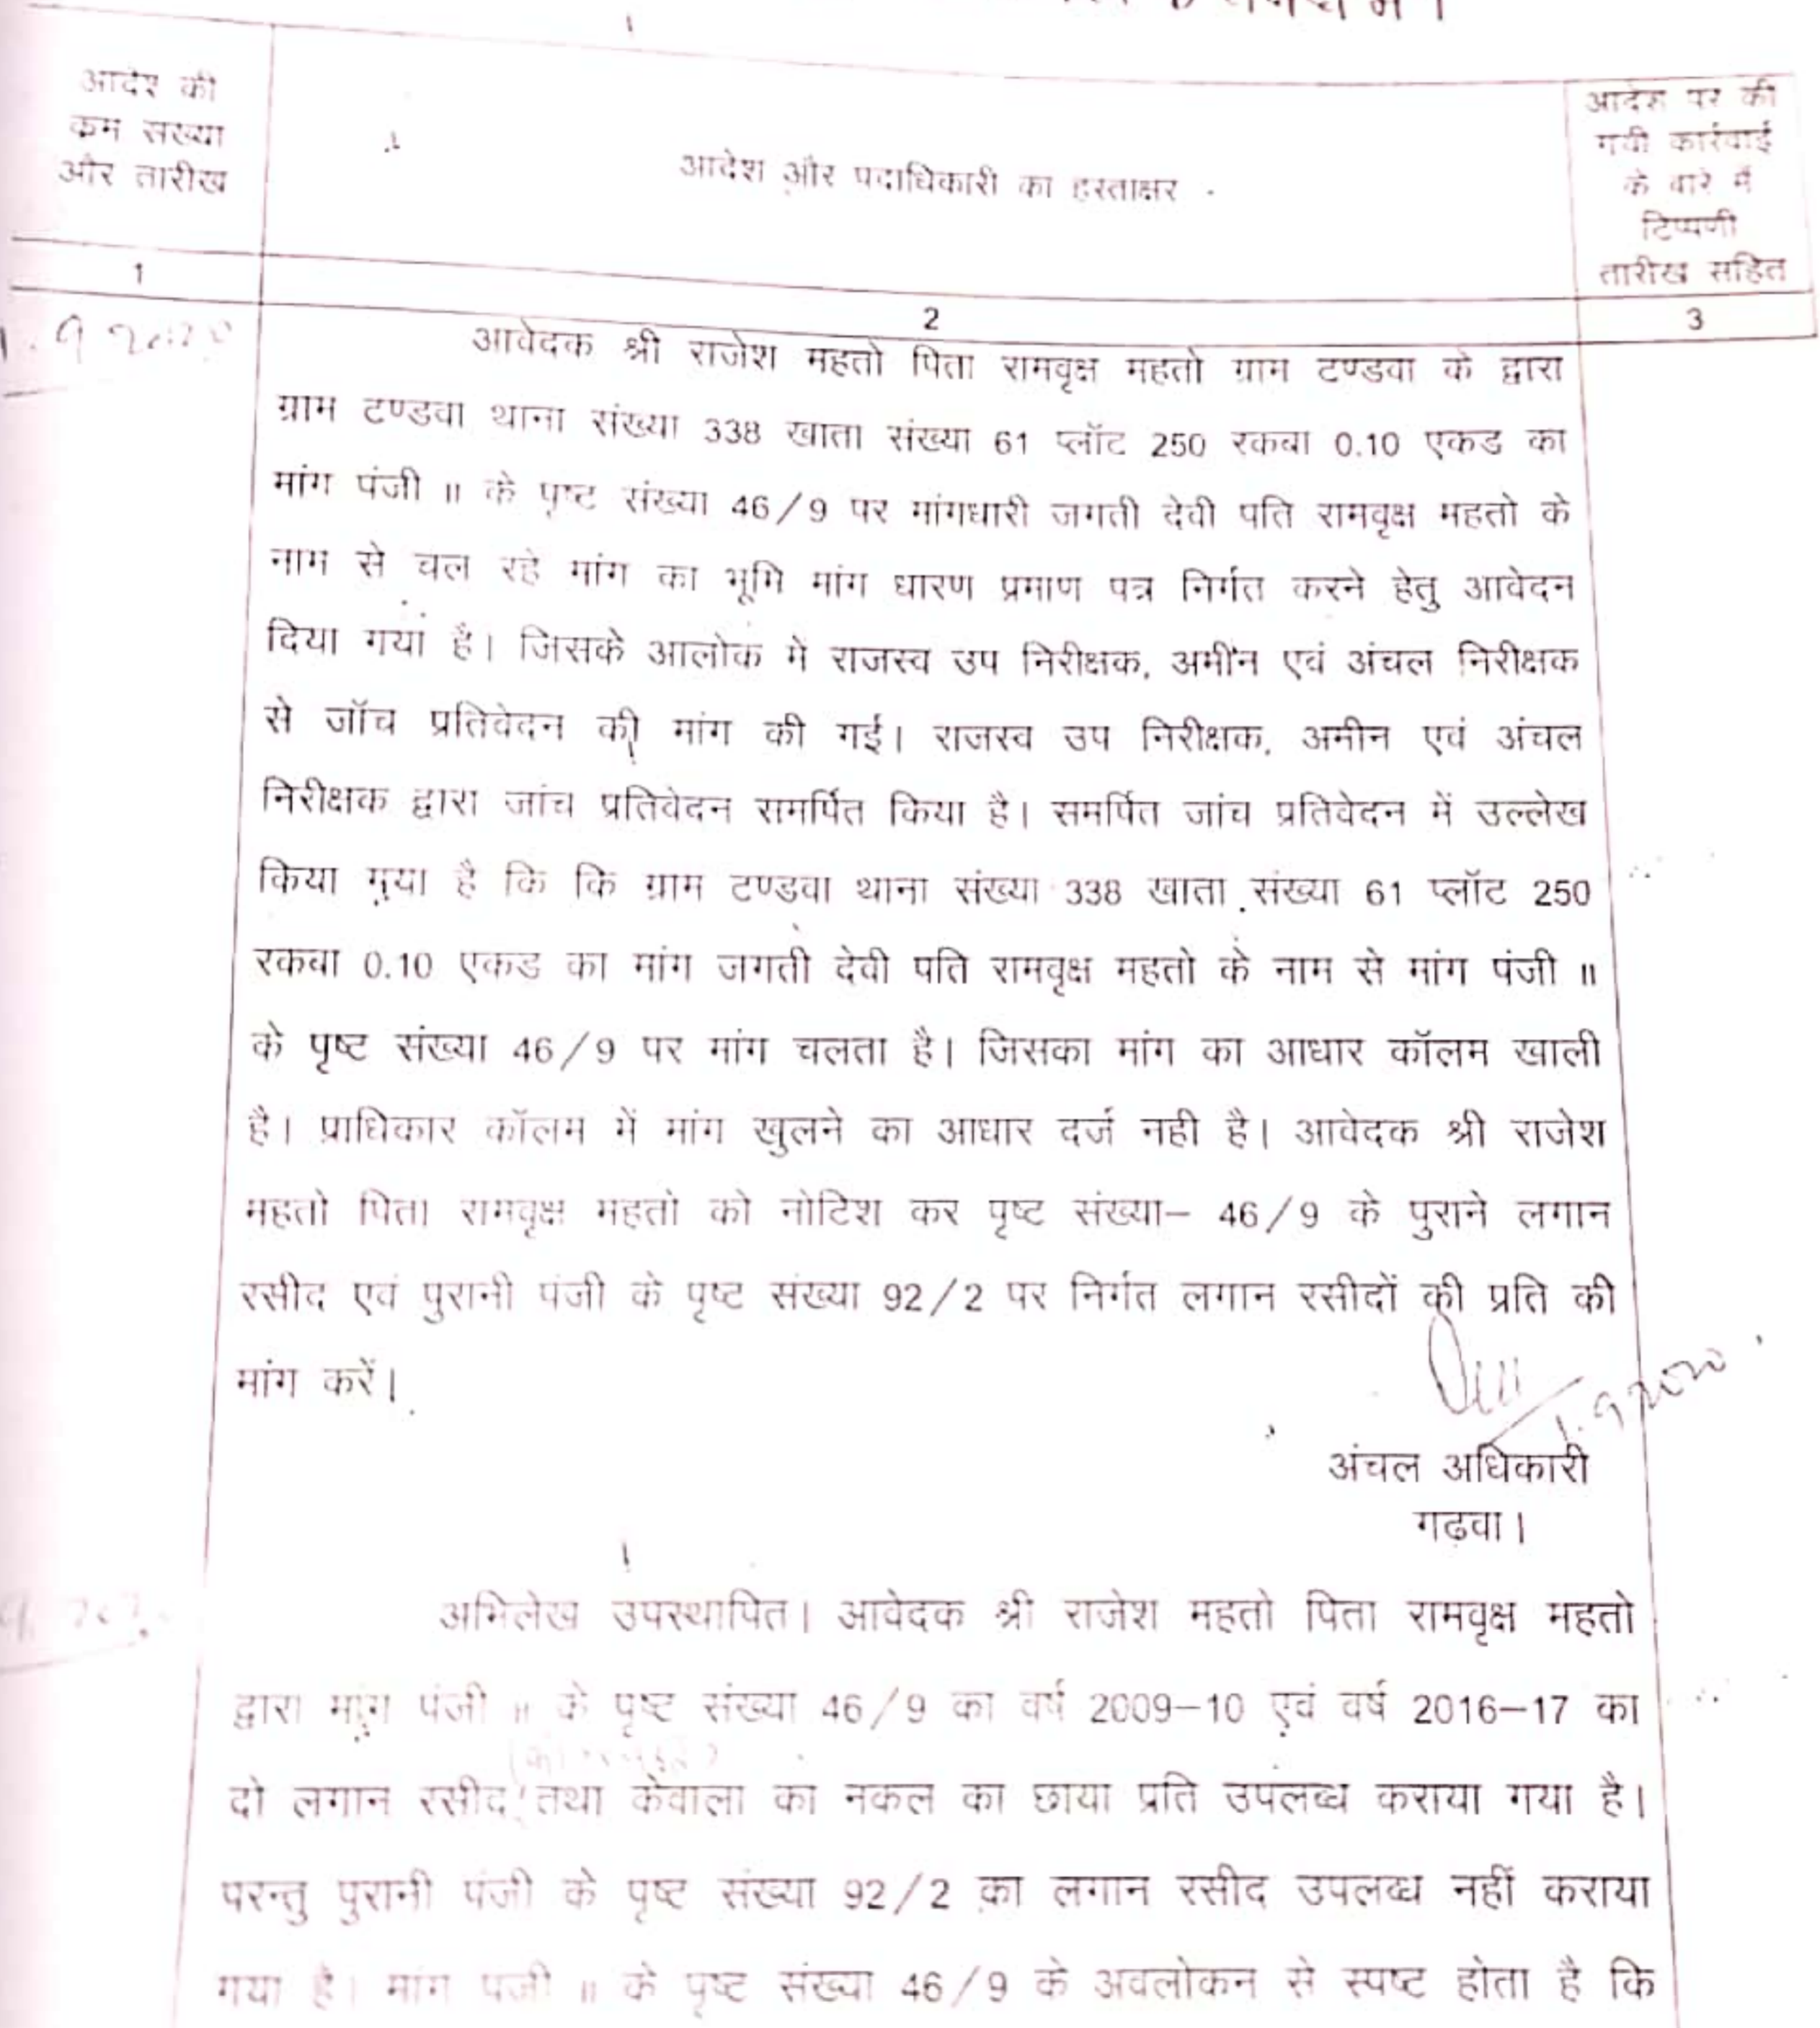 आदेश की
कम संख्या
और तारीख
आदेश और पदाधिकारी का हस्ताक्षर
आदेश पर की
गयी कार्रवाई
के बारे में
टिप्पणी
तारीख सहित
1
2
3
आवेदक श्री राजेश महतो पिता रामवृक्ष महतो ग्राम टण्डवा के द्वारा
ग्राम टण्डवा थाना संख्या 338 खाता संख्या 61 प्लॉट 250 रकबा 0.10 एकड का
मांग पंजी II के पृष्ट संख्या 46/9 पर मांगधारी जगती देवी पति रामवृक्ष महतो के
नाम से चल रहे मांग का भूमि मांग धारण प्रमाण पत्र निर्गत करने हेतु आवेदन
दिया गया है। जिसके आलोक मे राजस्व उप निरीक्षक, अमीन एवं अंचल निरीक्षक
से जॉच प्रतिवेदन की मांग की गई। राजस्व उप निरीक्षक, अमीन एवं अंचल
निरीक्षक द्वारा जांच प्रतिवेदन समर्पित किया है। समर्पित जांच प्रतिवेदन में उल्लेख
किया गया है कि कि ग्राम टण्डवा थाना संख्या 338 खाता संख्या 61 प्लॉट 250
रकबा 0.10 एकड का मांग जगती देवी पति रामवृक्ष महतो के नाम से मांग पंजी II
के पृष्ट संख्या 46/9 पर मांग चलता है। जिसका मांग का आधार कॉलम खाली
है। प्राधिकार कॉलम में मांग खुलने का आधार दर्ज नही है। आवेदक श्री राजेश
महतो पिता रामवृक्ष महतो को नोटिश कर पृष्ट संख्या– 46/9 के पुराने लगान
रसीद एवं पुरानी पंजी के पृष्ट संख्या 92/2 पर निर्गत लगान रसीदों की प्रति की
मांग करें।
1.9.2020
अंचल अधिकारी
गढ़वा।
अभिलेख उपस्थापित। आवेदक श्री राजेश महतो पिता रामवृक्ष महतो
द्वारा मांग पंजी II के पृष्ट संख्या 46/9 का वर्ष 2009–10 एवं वर्ष 2016–17 का
दो लगान रसीद तथा केवाला का नकल का छाया प्रति उपलब्ध कराया गया है।
परन्तु पुरानी पंजी के पृष्ट संख्या 92/2 का लगान रसीद उपलब्ध नहीं कराया
गया है। मांग पंजी II के पृष्ट संख्या 46/9 के अवलोकन से स्पष्ट होता है कि